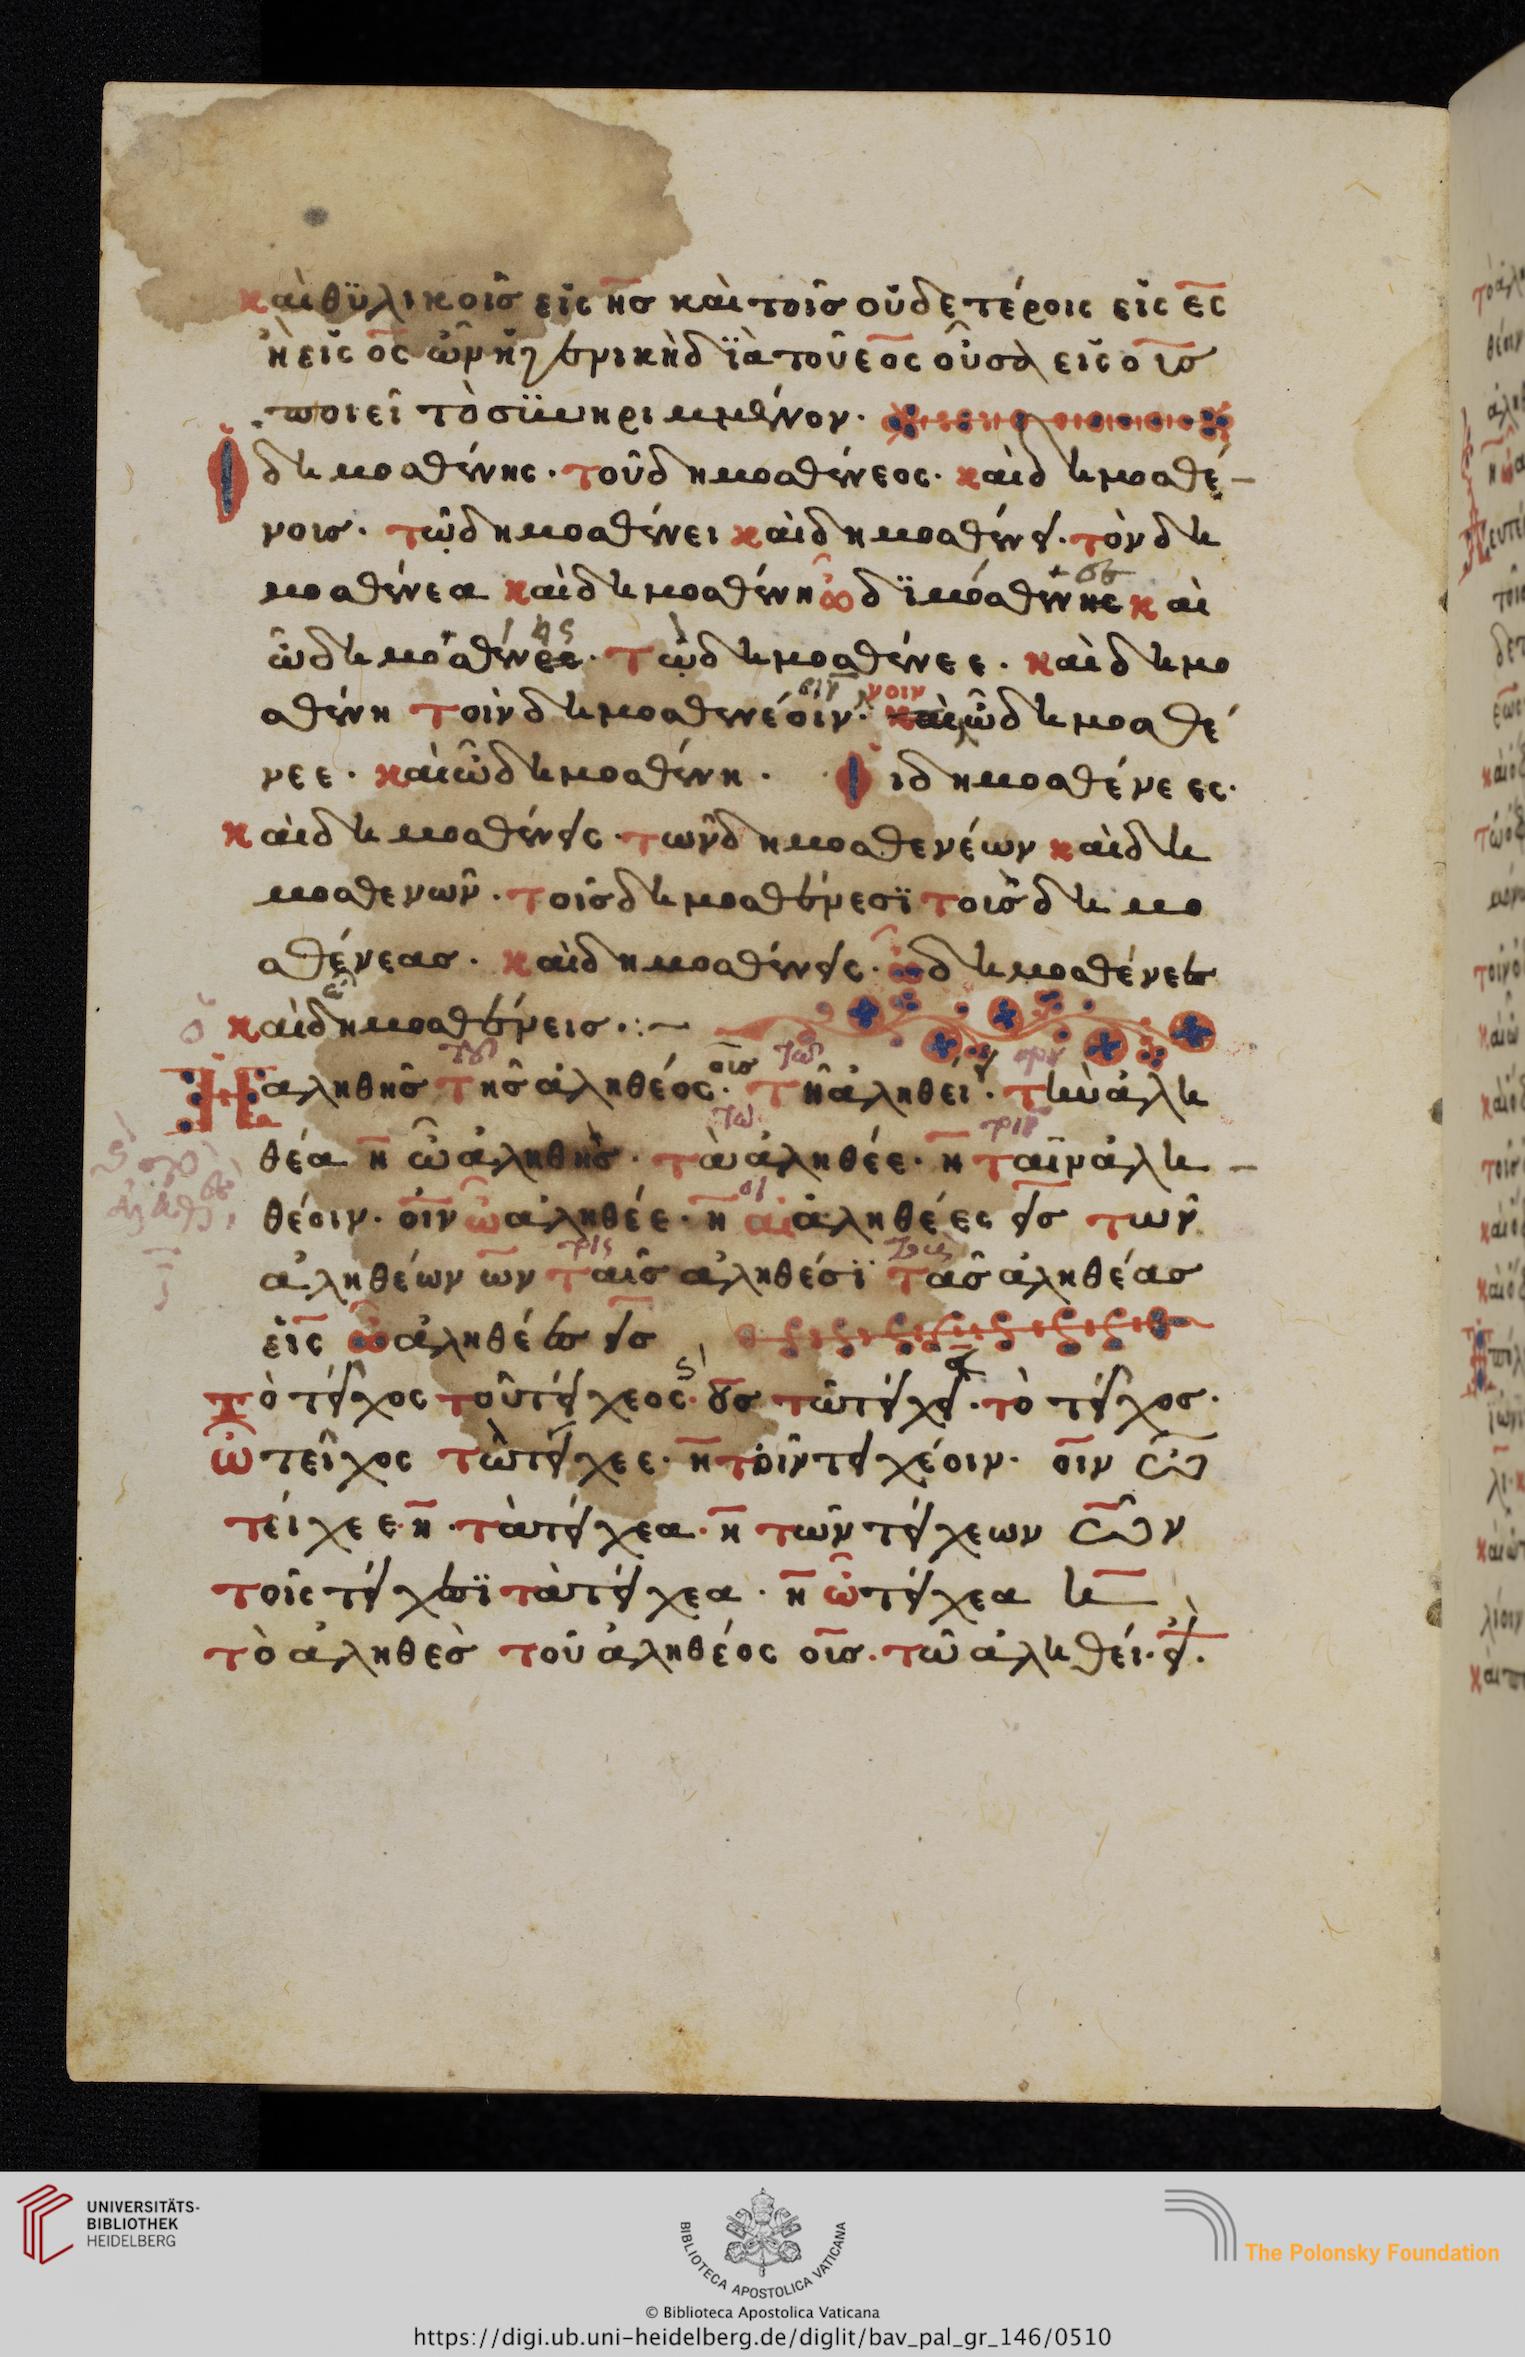 καὶ θϋλικοῖσ εἰς ησ καὶ τοῖσ οὐδετέροις εἰς ες
ἢ εἰς ος ὧν ἡ γενικὴ δϊὰ τοῦ εος οὖσα εἰς οισ
ποιεῖ τὸ σϋνηρημμένον.
Ο δημοσθένης. τοῦ δημοσθένεος. καὶ δημοσθέ-
νοισ. τῶ δημοσθένει καὶ δημοσθένει. τὸν δη
μοσθένεα καὶ δημοσθένη ὦ δϊμόσθενης καὶ
ὦ δημοσθένεε. τὼ δημοσθένεε. καὶ δημο
σθένη τοῖν δημοσθενέοιν. καὶ ὦ δημοσθέ
νεε. καὶ ὦ δημοσθένη. Οι δημοσθένεες.
καὶ δημοσθένεις. τῶν δημοσθενέων καὶ δη
μοσθενῶν. τοῖσ δημοσθένεσϊ τοὺσ δημο
σθένεασ. καὶ δημοσθένεις. ὦ δημοσθένεεσ
καὶ δημοσθένεισ.:~
Η αληθὴσ τῆσ ἀληθέος. οισ τῆ ἀληθέι. τὴν ἀλη
θέα η ὦ ἀληθὴσ. τὰ ἀληθέε. η ταῖν ἀλη-
θέοιν. οιν ὦ αληθέε. η αἱ ἀληθέες εισ τῶν
ἀληθέων ων ταῖσ ἀληθέσϊ τὰσ ἀληθέασ
εις ὦ ἀληθέεσ εισ
Τὸ τεῖχος τοῦ τείχεος. ουσ τῶ τείχει. τὸ τεῖχοσ.
ὦ τεῖχος τὼ τείχεε. η τοῖν τειχέοιν. οιν ὦ
τείχεε. η. τὰ τείχεα. η τῶν τείχεων ῶν
τοῖς τείχεσϊ τὰ τείχεα. η ὦ τείχεα η
τὸ ἀληθὲσ τοῦ ἀληθέος οισ. τῶ ἀληθέι. ει.
UNIVERSITÄTS-
BIBLIOTHEK
HEIDELBERG
BIBLIOTECA APOSTOLICA VATICANA
The Polonsky Foundation
© Biblioteca Apostolica Vaticana
https://digi.ub.uni-heidelberg.de/diglit/bav_pal_gr_146/0510